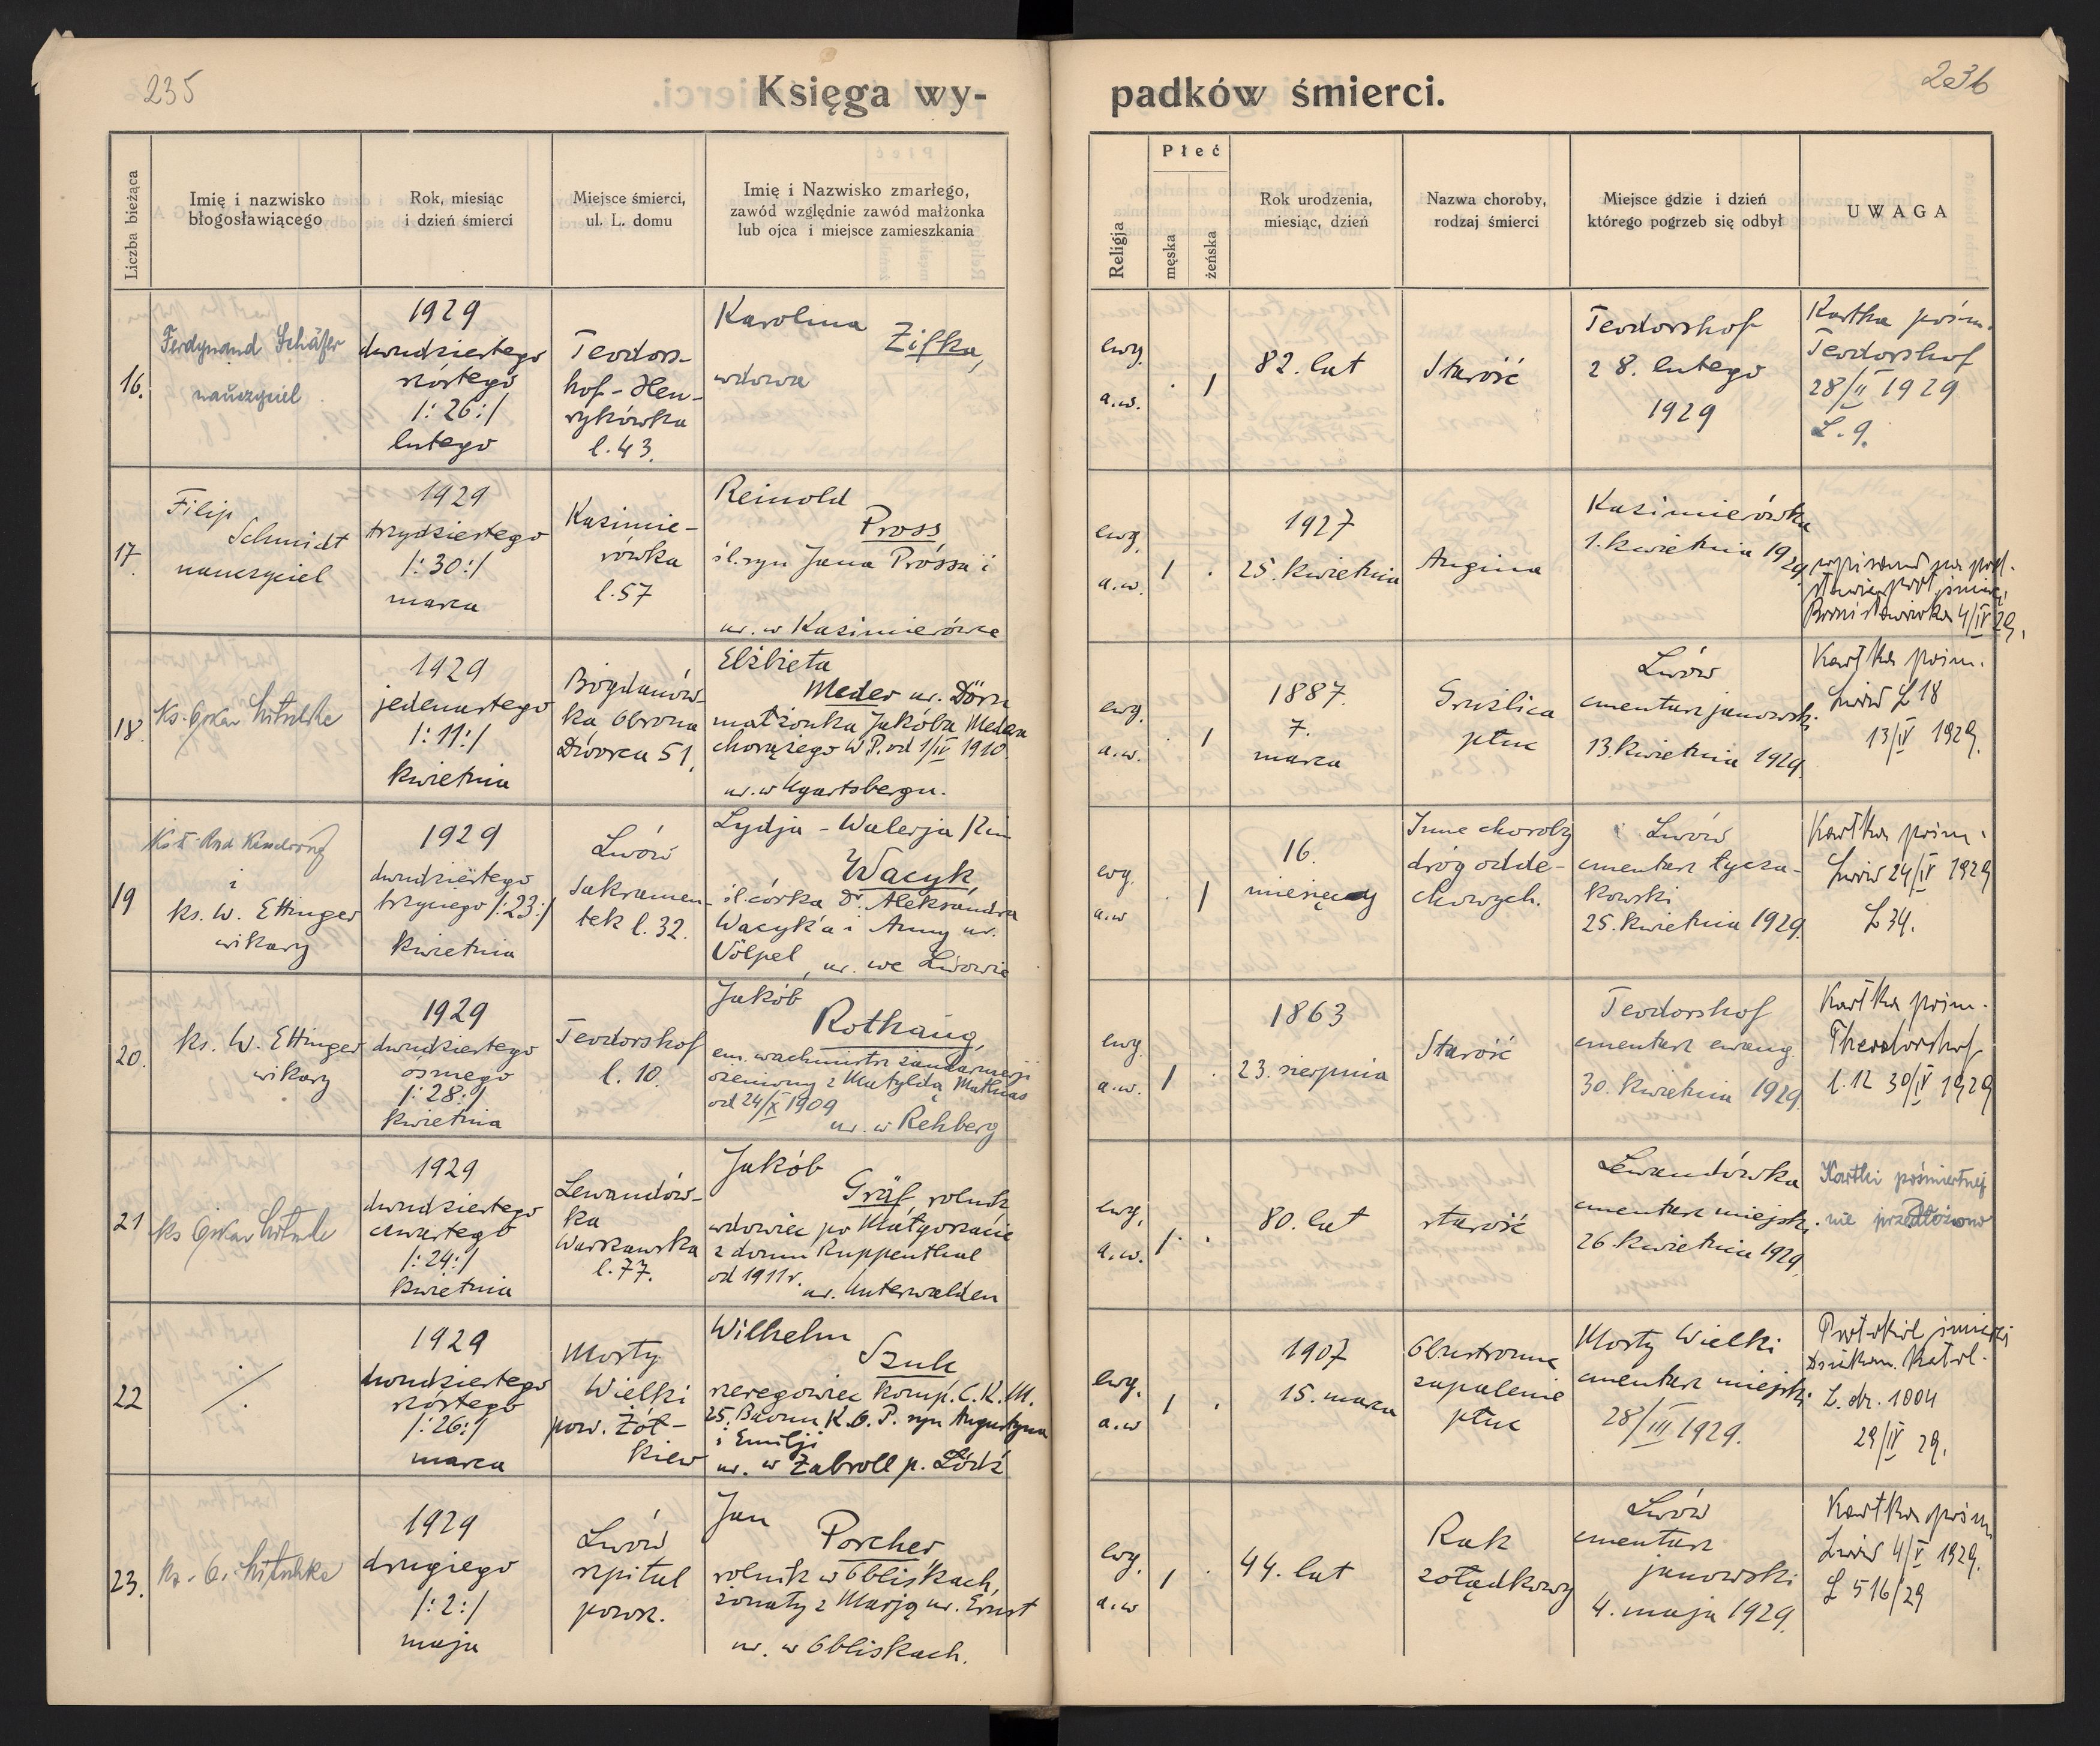 235
Księga wy-
padków śmierci.
236
Liczba bieżąca
Imię i nazwisko
błogosławiącego
Rok, miesiąc
i dzień śmierci
Miejsce śmierci,
ul. L. domu
Imię i Nazwisko zmarłego,
zawód względnie zawód małżonka
lub ojca i miejsce zamieszkania
Religja
Płeć
męska
żeńska
Rok urodzenia,
miesiąc, dzień
Nazwa choroby,
rodzaj śmierci
Miejsce gdzie i dzień
którego pogrzeb się odbył
UWAGA
16.
Ferdynand Schäfer
nauczyciel
1929
dwudziestego
szóstego
/: 26:/
lutego
Teodors-
hof-Hen-
rykówka
l. 43.
Karolina
Zifka,
wdowa
ewg.
a.w.
82. lat
Starość
Teodorshof
28. lutego
1929
Kartka pośm.
Teodorshof
28/II 1929
L. 9.
17.
Filip
Schmidt
nauczyciel
1929
trzydziestego
/: 30:/
marca
Kazimie-
rówka
l. 57
Reinold
Pross
śl. syn Jana Prossa i
ur. w Kazimierówce
ewg.
a.w.
1927
25. kwietnia
Angina
Kazimierówka
1. kwietnia 1929.
wpisano na pod-
stawie
Bronisławówka 4/IV 29.
18.
Ks. Oskar
1929
jedenastego
/: 11:/
kwietnia
Bogdanów-
ka Obrona
Dworca 51.
Elżbieta
Meder ur. Dörn
małżonka Jakóba Medera
chorążego W.P. od 1/IV 1910.
ur. w
ewg.
a.w.
1887.
7.
marca
Gruźlica
płuc
Lwów
cmentarz janowski
13. kwietnia 1929.
Kartka pośm.
Lwów L 18
13/IV 1929.
19
i
ks. W. Ettinger
wikary
1929
dwudziestego
trzeciego /:23:/
kwietnia
Lwów
Sakramen-
tek l. 32.
Lydja - Walerja
Wacyk,
śl. córka Dr. Aleksandra
Wacyk'a i Anny ur.
Völpel, ur. we Lwowie
ewg.
a.w
16.
miesięcy
Inne choroby
dróg odde-
chowych.
Lwów
cmentarz łycza-
kowski
25. kwietnia 1929.
Kartka pośm.
Lwów 24/IV 1929
L 34.
20.
ks. W. Ettinger
wikary
1929
dwudziestego
ósmego
/: 28:/
kwietnia
Teodorshof
l. 10.
Jakób
Rothaug,
em. wachmistrz żandarmerji
ożeniony z Matyldą Mathias
od 24/X 1909
ur. w Rehberg
ewg.
a.w.
1863
23. sierpnia
Starość
Teodorshof
cmentarz ewang.
30. kwietnia 1929.
Kartka pośm.
Theodorshof
l. 12 30/IV 1929
21
ks Oskar
1929
dwudziestego
czwartego
/: 24:/
kwietnia
Lewandów-
ka
Warszawska
l. 77.
Jakób
Gräf, rolnik
wdowiec po Małgorzacie
z domu Ruppenthal
od 1911 r.
ur. Unterwalden
ewg.
a.w.
80. lat
starość
Lewandówka
cmentarz miejski.
26. kwietnia 1929.
Kartki pośmiertnej
nie przedłożono
22
/.
1929
dwudziestego
szóstego
/: 26:/
marca
Mosty
Wielki
pow. Żół-
kiew
Wilhelm
Szulc
szeregowiec komp. C.K.M.
25. Baonu K.O.P. syn Augustyna
i Emilji
ur. w Zabroll p. Łódź
ewg.
a.w
1907
15. marca
Obustronne
zapalenie
płuc
Mosty Wielki
cmentarz miejski
28/III 1929.
Protokół śmierci
Dziekan. Katol.
L. dz. 1004
29/IV 29.
23.
ks. O.
1929
drugiego
/: 2:/
maja
Lwów
szpital
powsz.
Jan
Porcher
rolnik w Obliskach,
żonaty z Marją ur. Ernst
ur. w Obliskach.
ewg.
a.w
44. lat
Rak
żołądkowy
Lwów
cmentarz
janowski
4. maja 1929.
Kartka pośm
Lwów 4/V 1929.
L 516/29